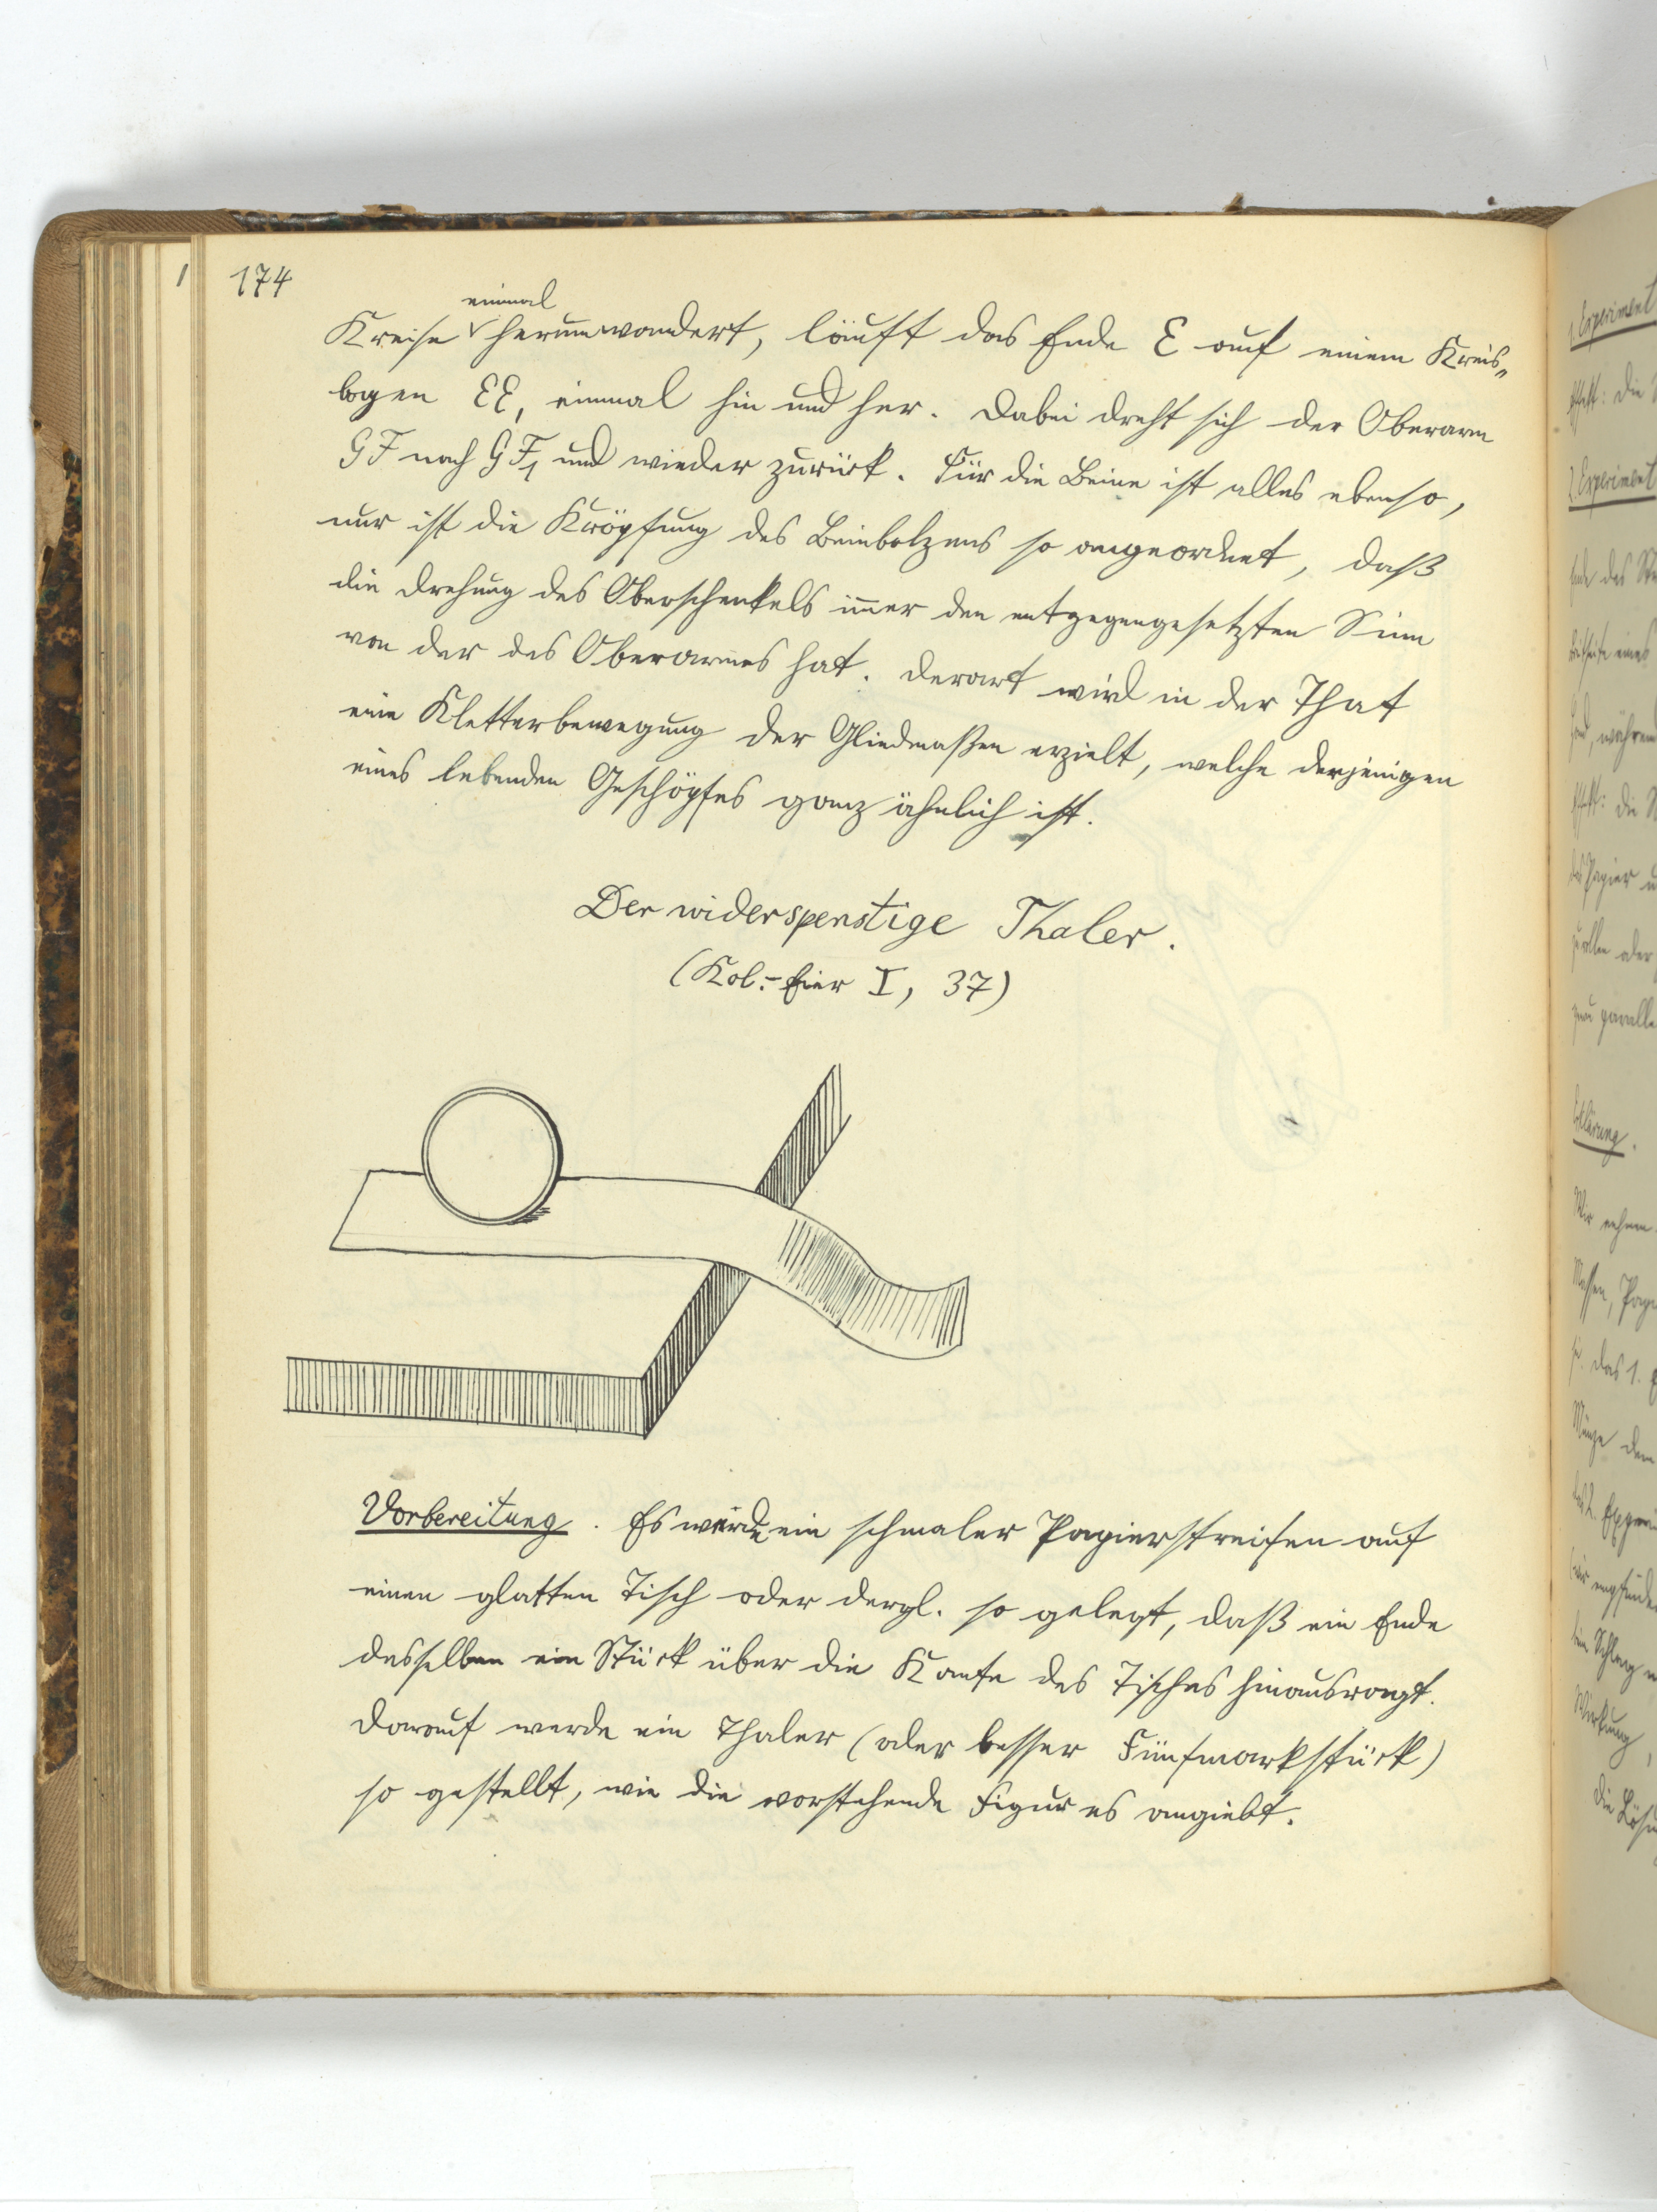 174
einmal
Kreise herumwandert, läuft das Ende E auf einem Kreis-
bogen EE, einmal hin und her. Dabei dreht sich der Oberarm
GF nach GF1 und wieder zurück. Für die Beine ist alles ebenso,
nur ist die Kröpfung des Beinbolzens so angeordnet, daß
die Drehung des Oberschenkels immer den entgegengesetzten Sinn
von der des Oberarmes hat. Derart wird in der That
eine Kletterbewegung der Gliedmaßen erzielt, welche derjenigen
eines lebenden Geschöpfes ganz ähnlich ist.
Der widerspenstige Thaler.
(Kol.-Eier I, 37)
Vorbereitung. Es werde ein schmaler Papierstreifen auf
einen glatten Tisch oder dergl. so gelegt, daß ein Ende
desselben ein Stück über die Kante des Tisches hinausragt.
Darauf werde ein Thaler (oder besser Fünfmarkstück)
so gestellt, wie die vorstehende Figur es angiebt.
1. Experiment
Effekt: Die
2. Experiment
Ende des
eines
Hand, während
Effekt: Die
das Papier
oder
Erklärung.
Wir nehmen
Massen,
das 1.
Münze dem
das 2.
Schlag
Wirkung,